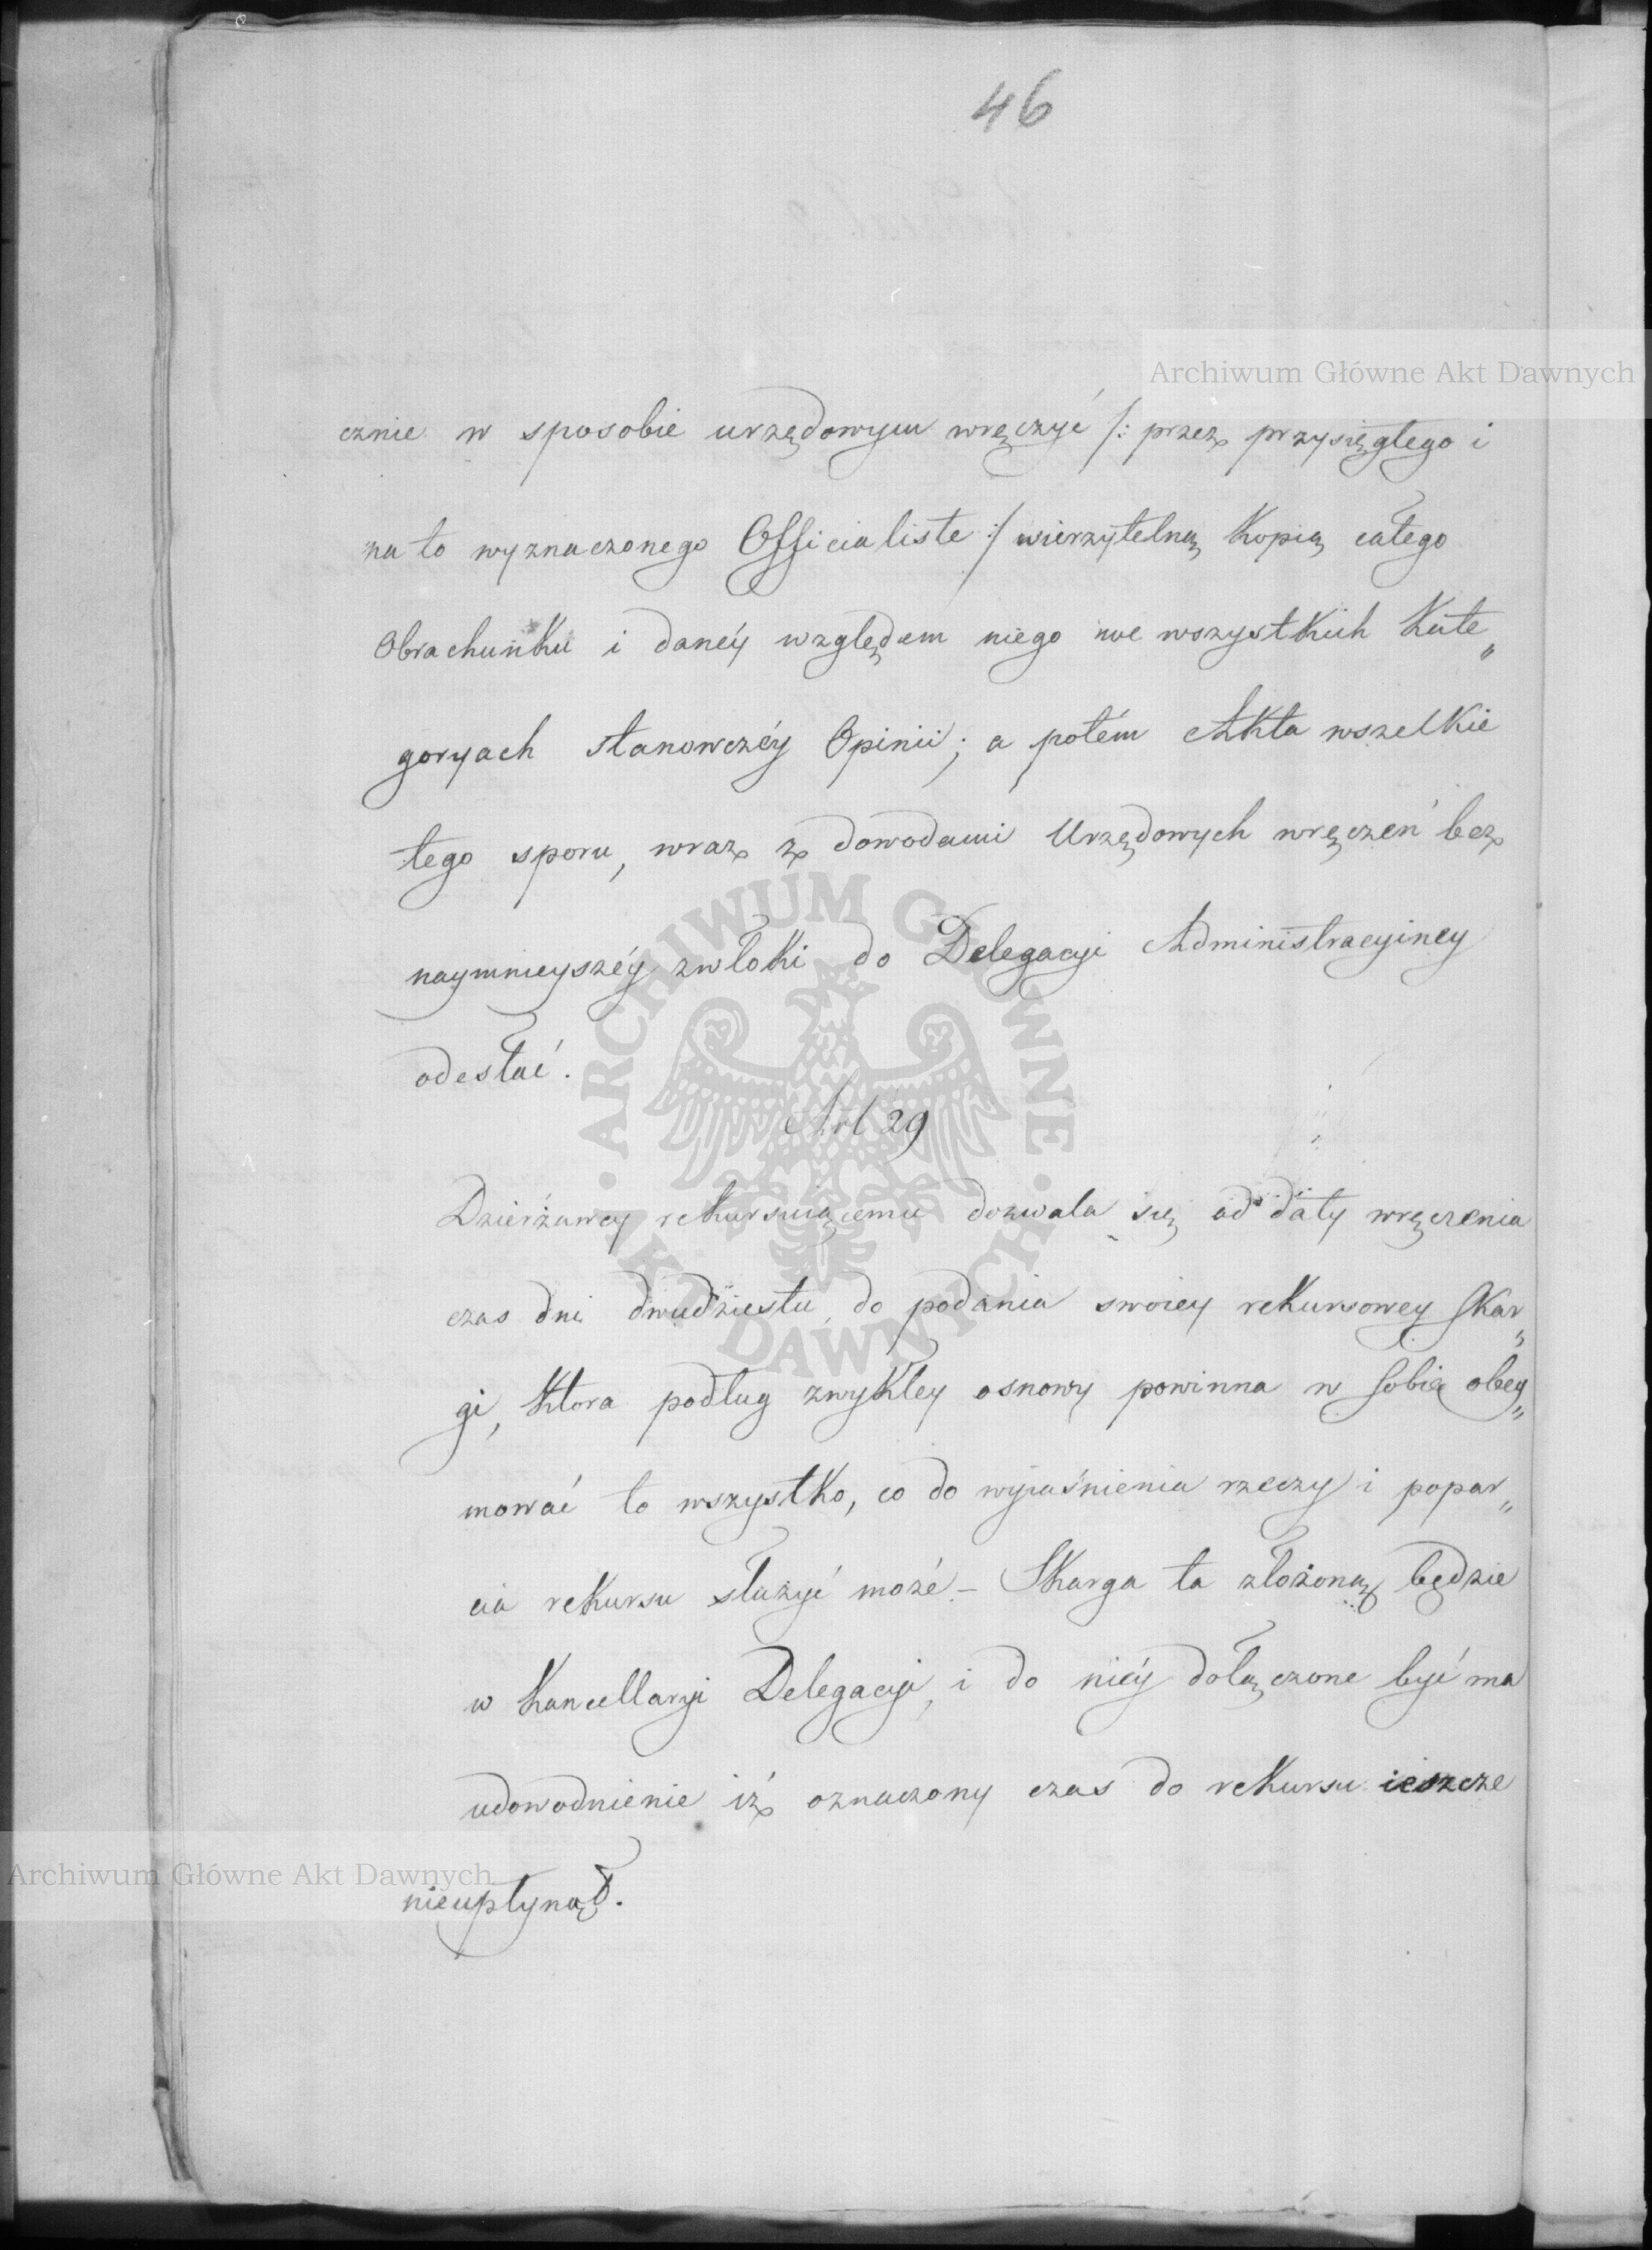 46
Archiwum Główne Akt Dawnych
cznie w sposobie urzędowym wręczyć /: przez przysięgłego i
na to wyznaczonego Officialiste :/ wierzytelną Kopią całego
Obrachunku i daney względem niego we wszystkich Kate„
goryach stanowczéy Opinii; a potém Akta wszelkie
tego sporu, wraz z dowodami Urzędowych wręczeń bez
naymnieyszéy zwłoki do Delegacyi Administracyiney
odesłać.
Art 29
Dzierżawcy rekursuiącemu dozwala się od daty wręczenia
czas dni dwudziestu do podania swoiey rekursowey skar„
gi, Ktora podług zwykłey osnowy powinna w sobie obey„
mować to wszystko, co do wyiaśnienia rzeczy i popar„
cia rekursu służyć może – Skarga ta złożoną będzie
w Kancellaryi Delegacyi, i do niéy dołączone być ma
udowodnienie iż oznaczony czas do rekursu ieszcze
nieupłynął.
Archiwum Główne Akt Dawnych
ARCHIWUM GŁÓWNE AKT DAWNYCH